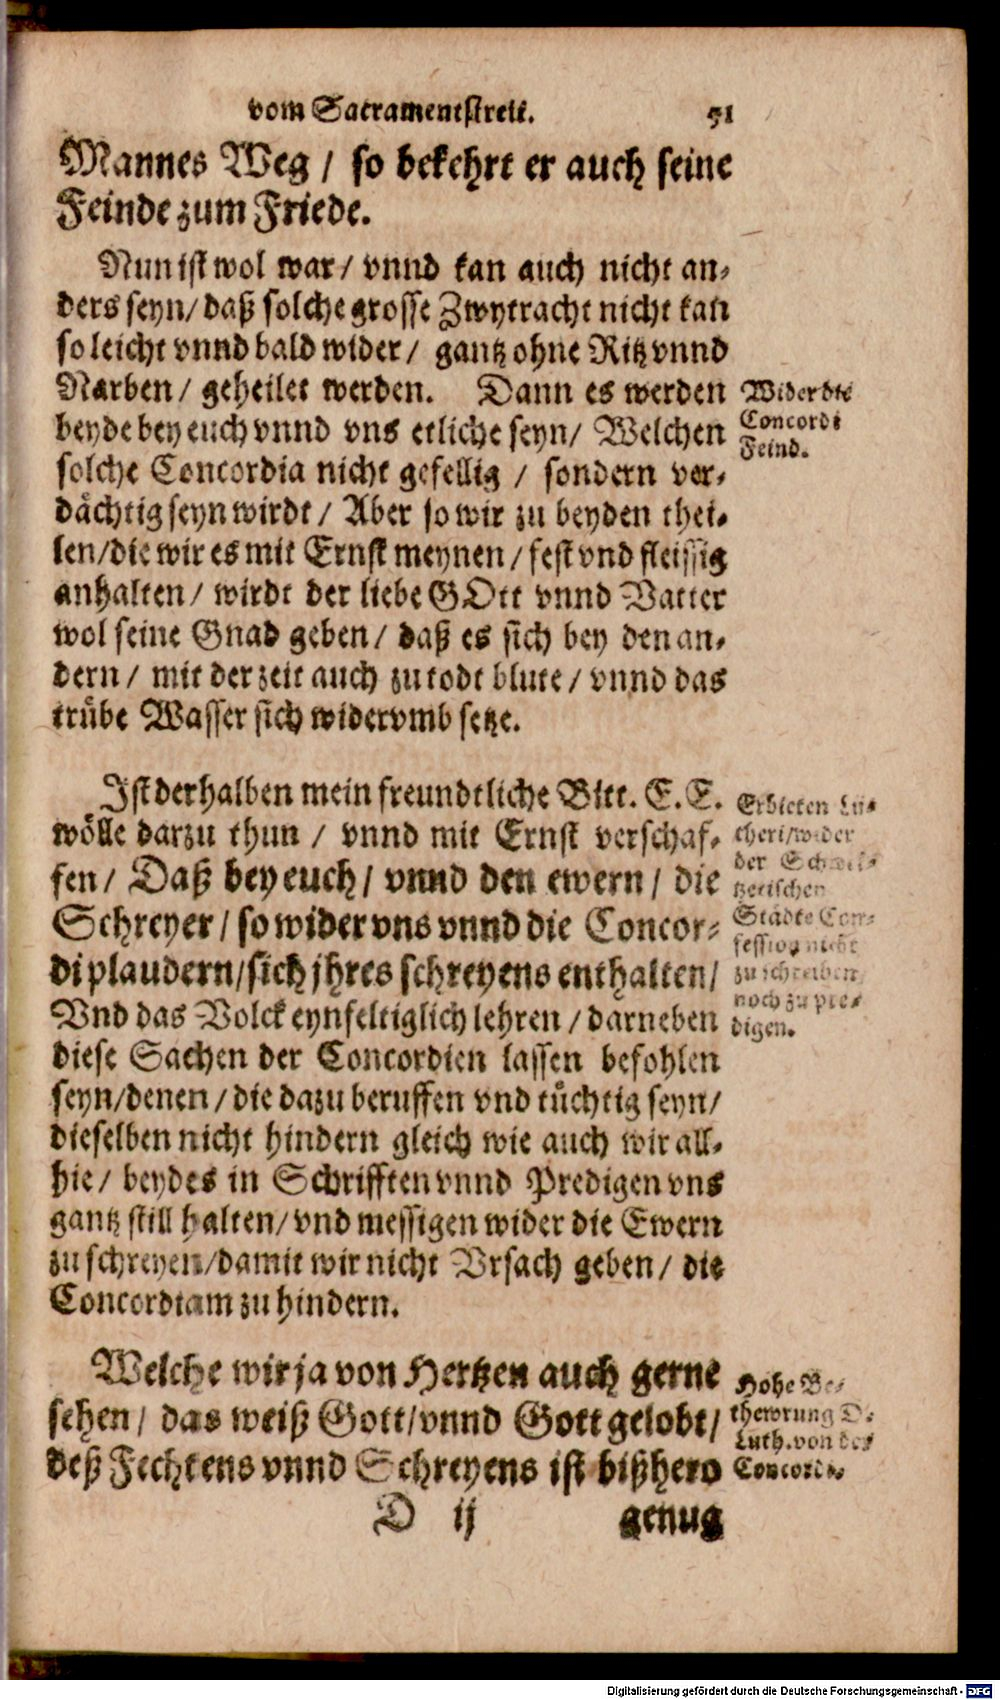 vom Sacramentstreit. 51
Mannes Weg / so bekehrt er auch seine
Feinde zum Friede.
Nun ist wol war / vnnd kan auch nicht an-
ders seyn / daß solche grosse Zwytracht nicht kan
so leicht vnnd bald wider / gantz ohne Ritz vnnd
Narben / geheilet werden. Dann es werden
beyde bey euch vnnd vns etliche seyn / Welchen
solche Concordia nicht gefellig / sondern ver-
dächtig seyn wirdt / Aber so wir zu beyden thei-
len / die wir es mit Ernst meynen / fest vnd fleissig
anhalten / wirdt der liebe GOtt vnnd Vatter
wol seine Gnad geben / daß es sich bey den an-
dern / mit der zeit auch zu todt blute / vnnd das
trübe Wasser sich widervmb setze.
Wider die
Concordi
Feind.
Ist derhalben mein freundtliche Bitt. E. E.
wölle darzu thun / vnnd mit Ernst verschaf-
fen / Daß bey euch / vnnd den ewern / die
Schreyer / so wider vns vnnd die Concor-
di plaudern / sich jhres schreyens enthalten /
Vnd das Volck eynfeltiglich lehren / darneben
diese Sachen der Concordien lassen befohlen
seyn / denen / die dazu beruffen vnd tüchtig seyn /
dieselben nicht hindern gleich wie auch wir all-
hie / beydes in Schrifften vnnd Predigen vns
gantz still halten / vnd messigen wider die Ewern
zu schreyen / damit wir nicht Vrsach geben / die
Concordiam zu hindern.
Erbieten Lu-
theri / wider
der Schwei-
tzerischen
Städte Con-
fession nicht
zu schreiben
noch zu pre-
digen.
Welche wir ja von Hertzen auch gerne
sehen / das weiß Gott / vnnd Gott gelobt /
deß Fechtens vnnd Schreyens ist bißhero
Hohe Be-
thewrung D.
Luth. von der
Concordi.
D ij genug
Digitalisierung gefördert durch die Deutsche Forschungsgemeinschaft - DFG